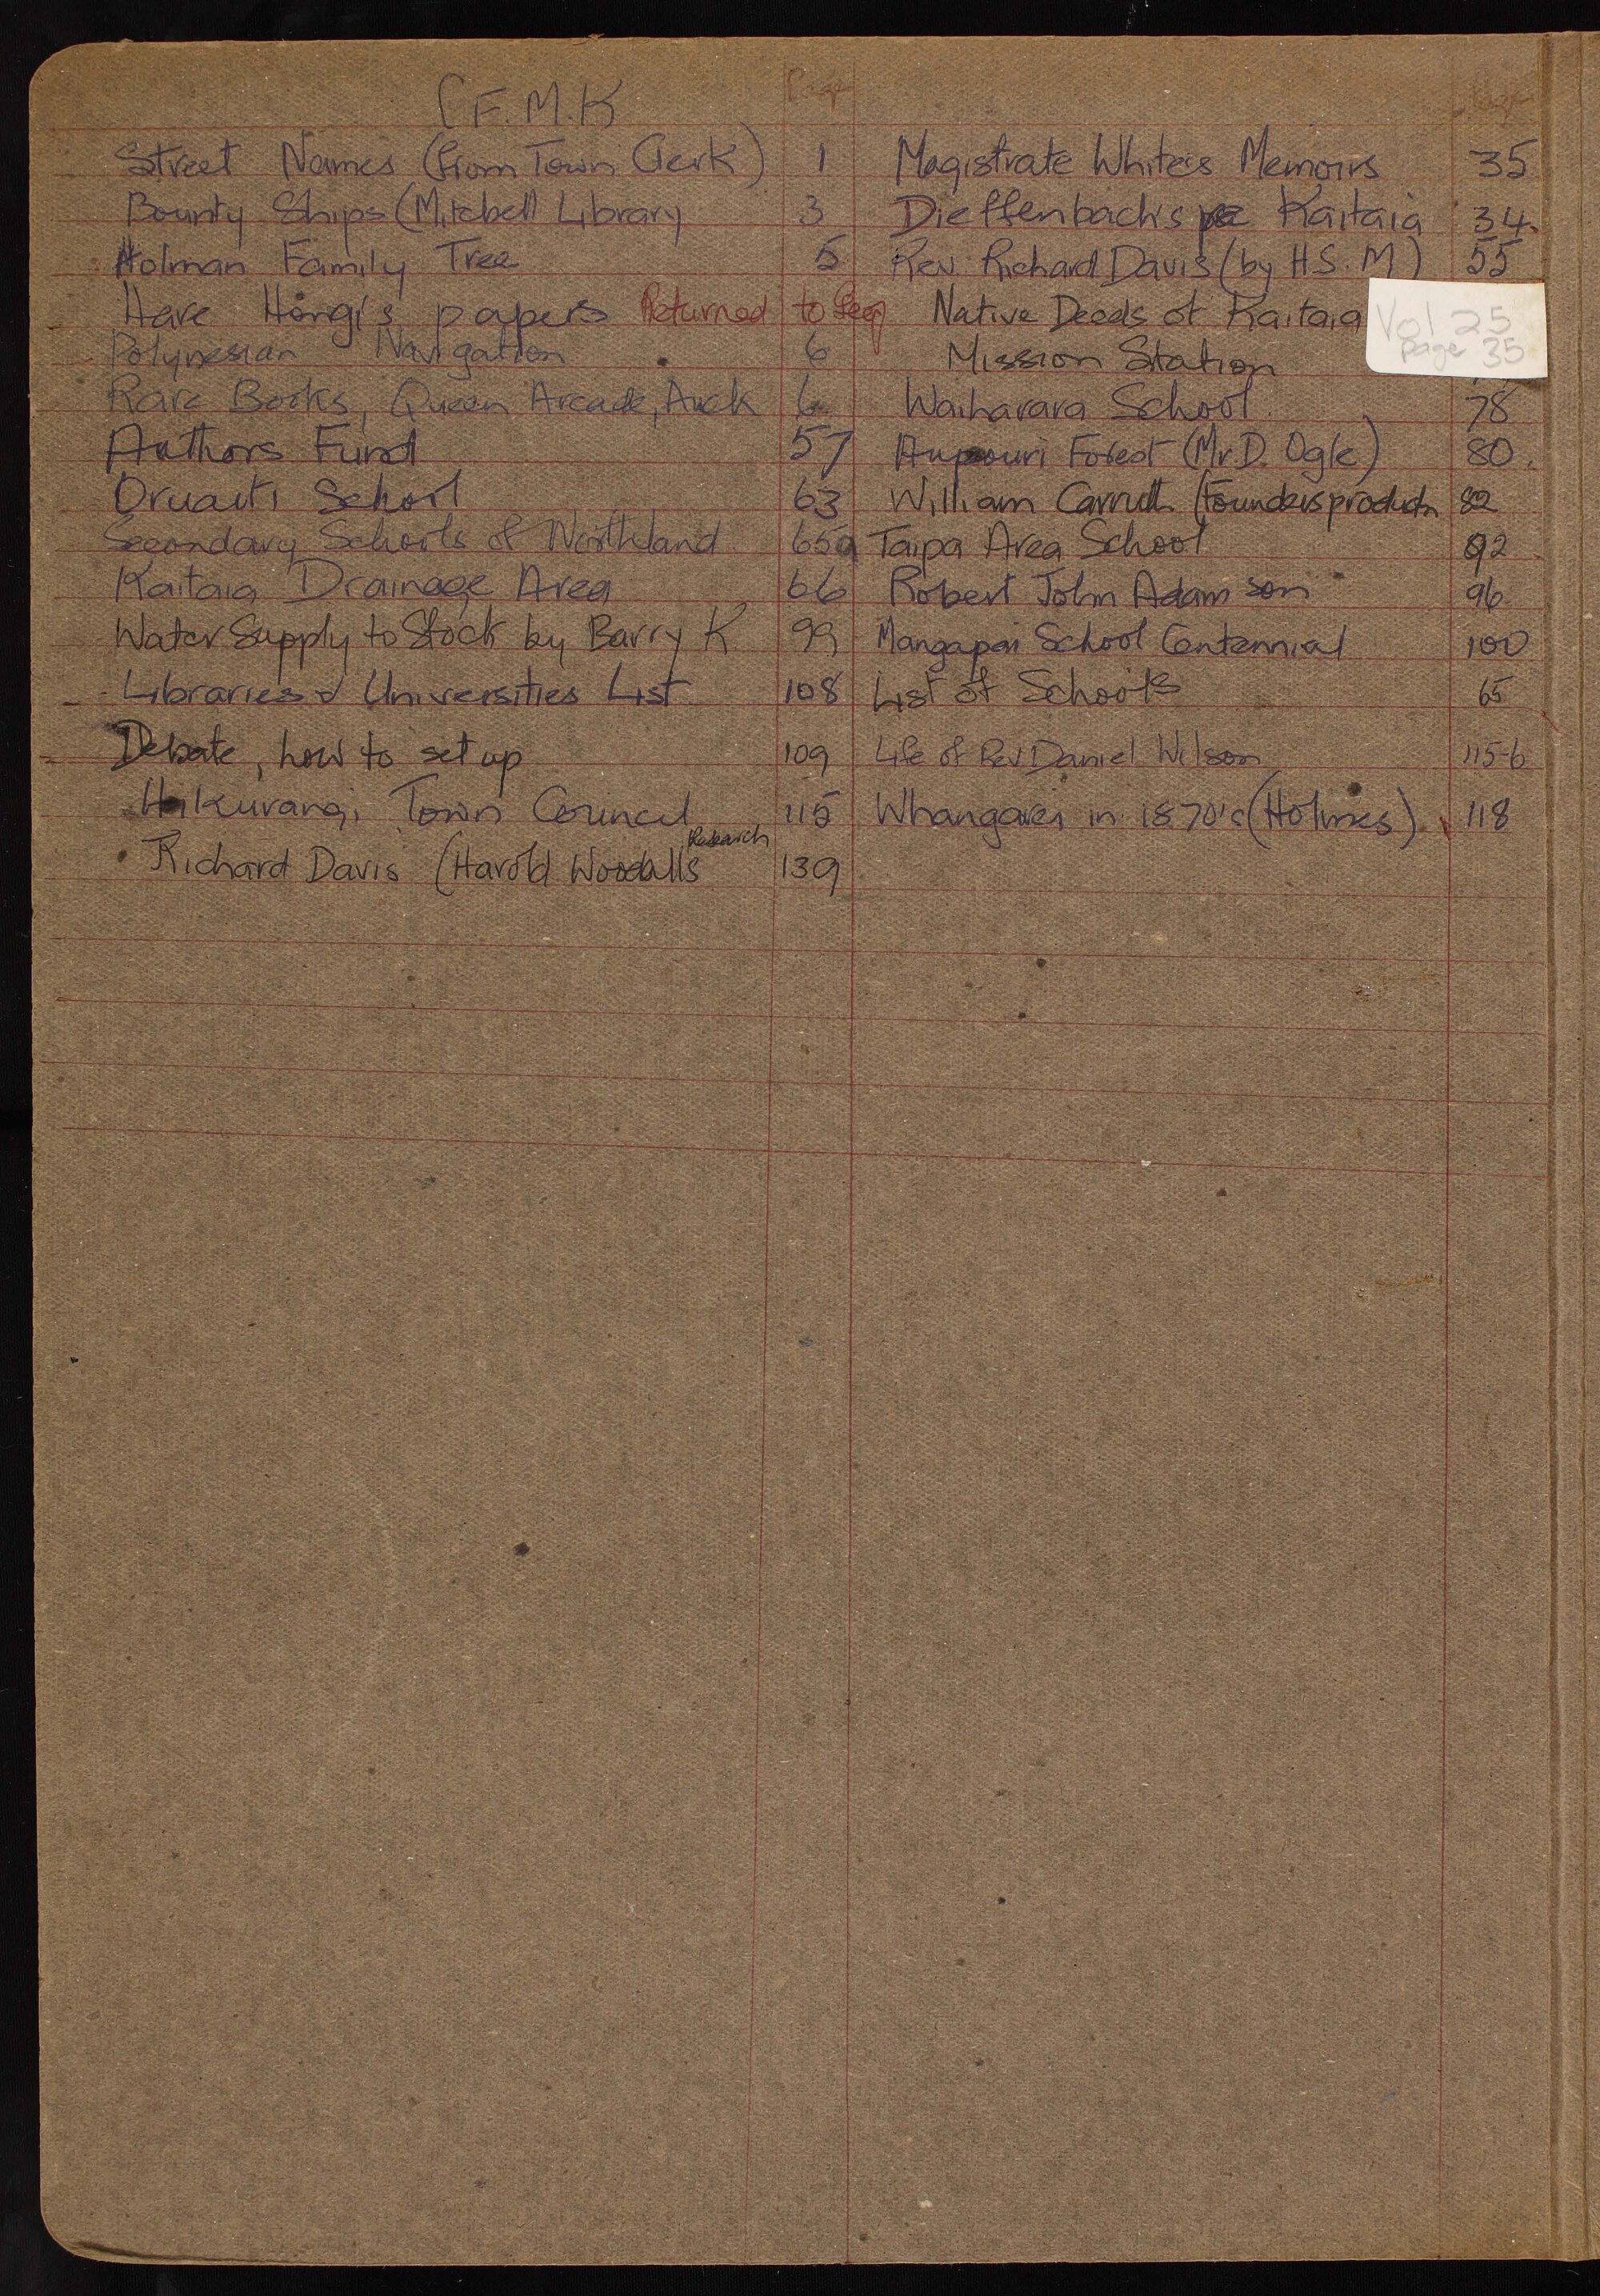 [F.M.K
Page
Street Names (from Town Clerk) 1
Bounty Ships (Mitchell Library 3
Holman Family Tree 5
Hare Hongi's papers Returned to
Polynesian Navigation 6
Rare Books, Queen Arcade, Auck 6
Authors Fund 57
Oruaiti School 63
Secondary Schools of Northland 65a
Kaitaia Drainage Area 66
Water Supply to Stock by Barry K 99
Libraries & Universities List 108
Debate, how to set up 109
Hikurangi Town Council 115
Research
Richard Davis (Harold Woodalls 139
Page
Magistrate White's Memoirs 35
Dieffenbach's Kaitaia 34.
Rev. Richard Davis (by H.S.M) 55
Native Deeds of Kaitaia
Mission Station
Vol 25
page 35
Waiharara School. 78
Aupouri Forest (Mr. D. Ogle) 80.
William Carruth (Founders products 82
Taipa Area School 92
Robert John Adamson 96
Mangapai School Centennial 100
List of Schools 65
Life of Rev Daniel Wilson 115-6
Whangarei in 1870's (Holmes). 118